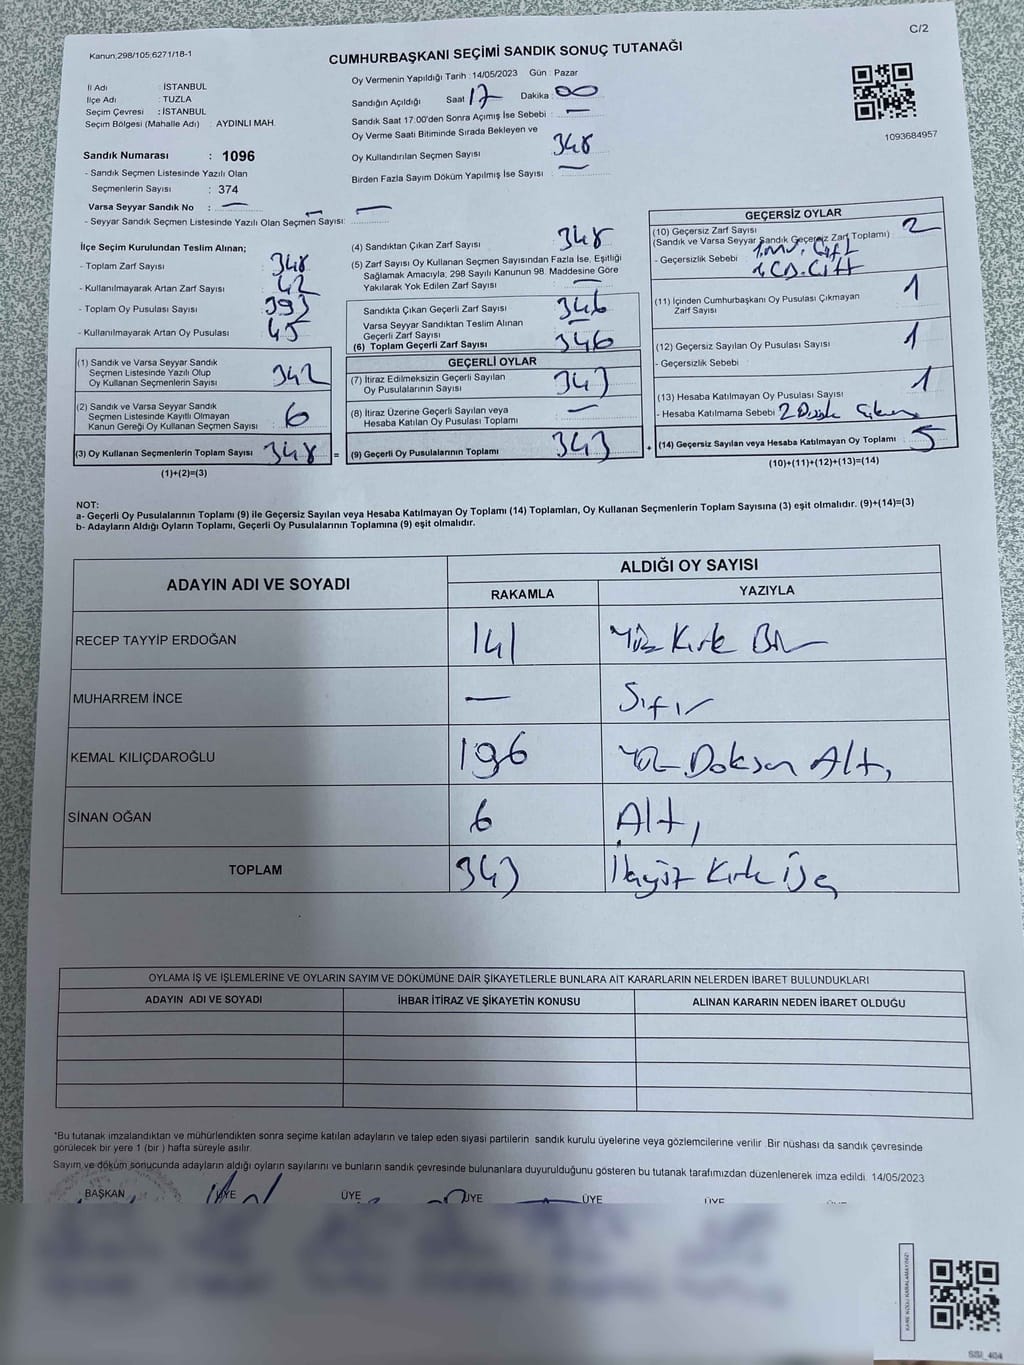 Kanun;298/105;6271/18-1
C/2
CUMHURBAŞKANI SEÇİMİ SANDIK SONUÇ TUTANAĞI
İl Adı : İSTANBUL
İlçe Adı : TUZLA
Seçim Çevresi : İSTANBUL
Seçim Bölgesi (Mahalle Adı) : AYDINLI MAH.
Sandık Numarası : 1096
- Sandık Seçmen Listesinde Yazılı Olan
Seçmenlerin Sayısı : 374
Varsa Seyyar Sandık No : —
- Seyyar Sandık Seçmen Listesinde Yazılı Olan Seçmen Sayısı: —
Oy Vermenin Yapıldığı Tarih : 14/05/2023 Gün : Pazar
Sandığın Açıldığı Saat 17 Dakika : 00
Sandık Saat 17:00'den Sonra Açımış İse Sebebi : —
Oy Verme Saati Bitiminde Sırada Bekleyen ve
Oy Kullandırılan Seçmen Sayısı : 348
Birden Fazla Sayım Döküm Yapılmış İse Sayısı : —
1093684957
İlçe Seçim Kurulundan Teslim Alınan;
- Toplam Zarf Sayısı : 348
- Kullanılmayarak Artan Zarf Sayısı : 42
- Toplam Oy Pusulası Sayısı : 393
- Kullanılmayarak Artan Oy Pusulası : 45
(1) Sandık ve Varsa Seyyar Sandık
Seçmen Listesinde Yazılı Olup
Oy Kullanan Seçmenlerin Sayısı : 342
(2) Sandık ve Varsa Seyyar Sandık
Seçmen Listesinde Kayıtlı Olmayan
Kanun Gereği Oy Kullanan Seçmen Sayısı : 6
(3) Oy Kullanan Seçmenlerin Toplam Sayısı : 348 =
(1)+(2)=(3)
(4) Sandıktan Çıkan Zarf Sayısı : 348
(5) Zarf Sayısı Oy Kullanan Seçmen Sayısından Fazla İse, Eşitliği
Sağlamak Amacıyla; 298 Sayılı Kanunun 98. Maddesine Göre
Yakılarak Yok Edilen Zarf Sayısı : —
Sandıkta Çıkan Geçerli Zarf Sayısı : 346
Varsa Seyyar Sandıktan Teslim Alınan
Geçerli Zarf Sayısı : —
(6) Toplam Geçerli Zarf Sayısı : 346
GEÇERLİ OYLAR
(7) İtiraz Edilmeksizin Geçerli Sayılan
Oy Pusulalarının Sayısı : 343
(8) İtiraz Üzerine Geçerli Sayılan veya
Hesaba Katılan Oy Pusulası Toplamı : —
(9) Geçerli Oy Pusulalarının Toplamı : 343 +
GEÇERSİZ OYLAR
(10) Geçersiz Zarf Sayısı : 2
(Sandık ve Varsa Seyyar Sandık Geçersiz Zarf Toplamı)
- Geçersizlik Sebebi : 1.MV. Çift
1.CB.Çift
(11) İçinden Cumhurbaşkanı Oy Pusulası Çıkmayan
Zarf Sayısı : 1
(12) Geçersiz Sayılan Oy Pusulası Sayısı : 1
- Geçersizlik Sebebi :
(13) Hesaba Katılmayan Oy Pusulası Sayısı : 1
- Hesaba Katılmama Sebebi : 2
(14) Geçersiz Sayılan veya Hesaba Katılmayan Oy Toplamı : 5
(10)+(11)+(12)+(13)=(14)
NOT:
a- Geçerli Oy Pusulalarının Toplamı (9) ile Geçersiz Sayılan veya Hesaba Katılmayan Oy Toplamı (14) Toplamları, Oy Kullanan Seçmenlerin Toplam Sayısına (3) eşit olmalıdır. (9)+(14)=(3)
b- Adayların Aldığı Oyların Toplamı, Geçerli Oy Pusulalarının Toplamına (9) eşit olmalıdır.
ADAYIN ADI VE SOYADI
ALDIĞI OY SAYISI
RAKAMLA YAZIYLA
RECEP TAYYİP ERDOĞAN 141 Yüz Kırk Bir
MUHARREM İNCE — Sıfır
KEMAL KILIÇDAROĞLU 196 Yüz Doksan Altı
SİNAN OĞAN 6 Altı
TOPLAM 343 Üçyüz Kırk Üç
OYLAMA İŞ VE İŞLEMLERİNE VE OYLARIN SAYIM VE DÖKÜMÜNE DAİR ŞİKAYETLERLE BUNLARA AİT KARARLARIN NELERDEN İBARET BULUNDUKLARI
ADAYIN ADI VE SOYADI İHBAR İTİRAZ VE ŞİKAYETİN KONUSU ALINAN KARARIN NEDEN İBARET OLDUĞU
*Bu tutanak imzalandıktan ve mühürlendikten sonra seçime katılan adayların ve talep eden siyasi partilerin sandık kurulu üyelerine veya gözlemcilerine verilir. Bir nüshası da sandık çevresinde
görülecek bir yere 1 (bir ) hafta süreyle asılır.
Sayım ve döküm sonucunda adayların aldığı oyların sayılarını ve bunların sandık çevresinde bulunanlara duyurulduğunu gösteren bu tutanak tarafımızdan düzenlenerek imza edildi. 14/05/2023
BAŞKAN ÜYE ÜYE ÜYE ÜYE ÜYE
KARE KODU KARALAMAYINIZ!
SSI_404